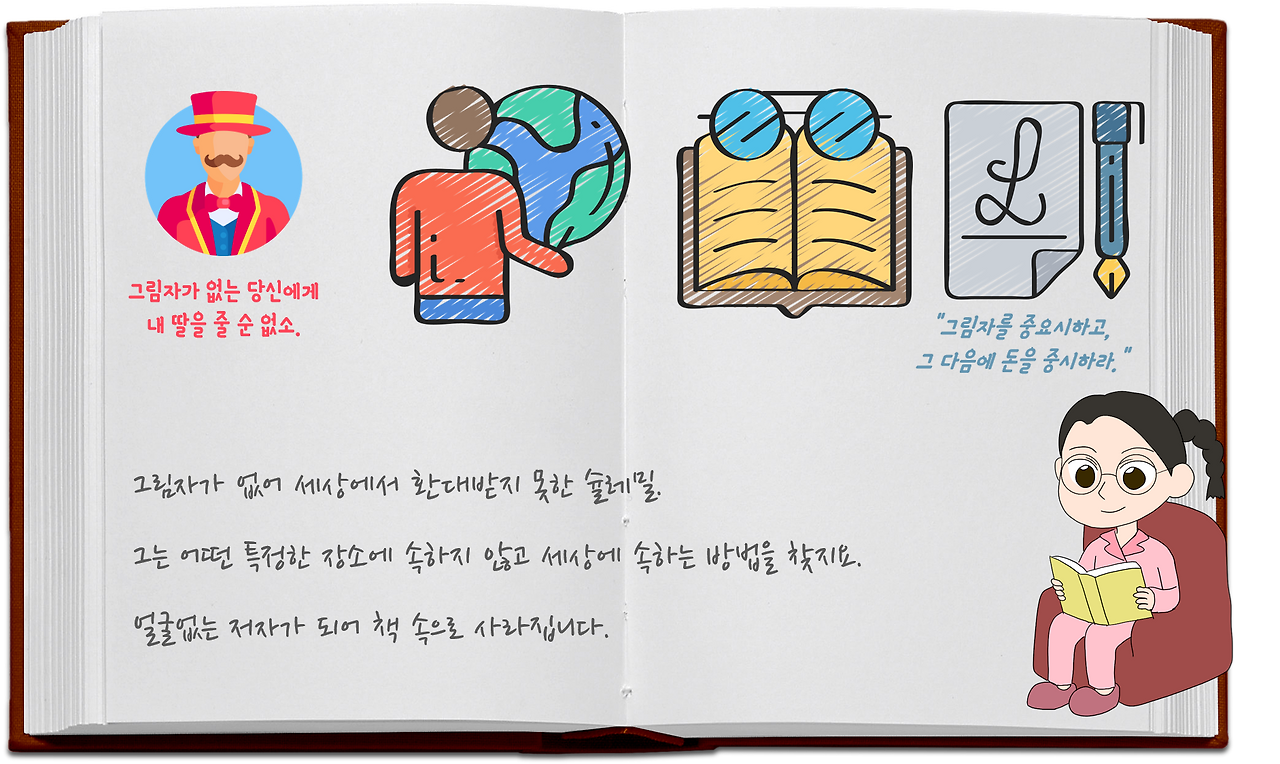 그림자가 없는 당신에게
내 딸을 줄 순 없소.
"그림자를 중요시하고,
그 다음에 돈을 중시하라."
그림자가 없어 세상에서 환대받지 못한 슐레밀.
그는 어떤 특정한 장소에 속하지 않고 세상에 속하는 방법을 찾지요.
얼굴없는 저자가 되어 책 속으로 사라집니다.